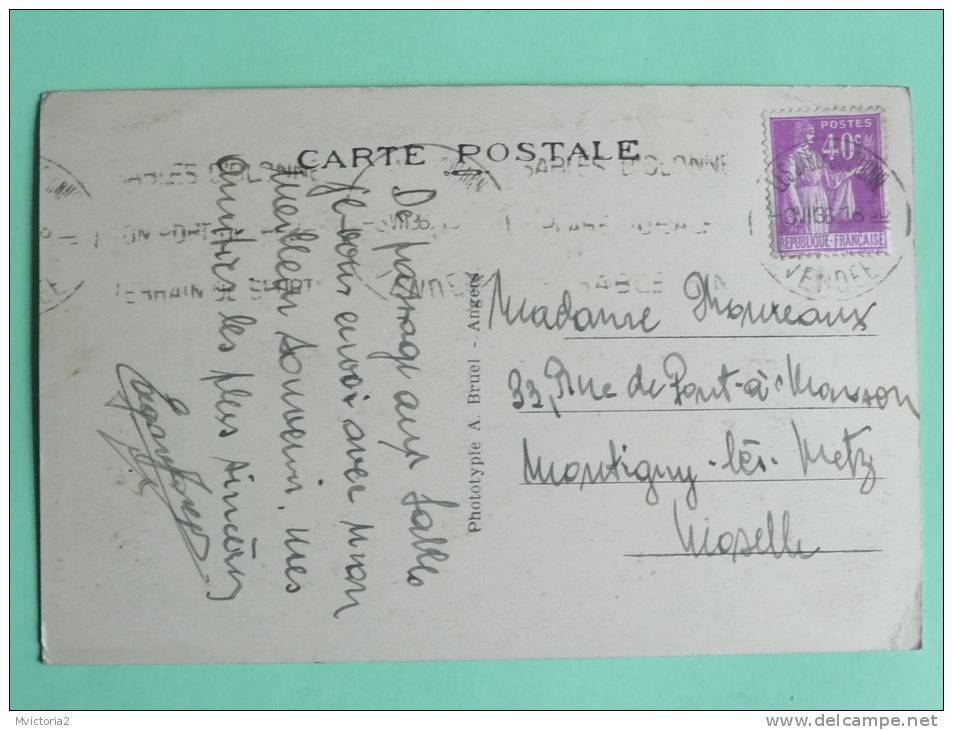 CARTE POSTALE
POSTES
40c
RÉPUBLIQUE-FRANÇAISE
VENDEE
SABLES D'OLONNE
De passage aux Sables
je vous envoie avec mon
meilleur souvenir. mes
amitiés les plus sincères
Phototypie A. Bruel - Angers
Madame
33, Rue de Pont-à-Mousson
Montigny-lès-Metz
Moselle
Mvictoria2
www.delcampe.net